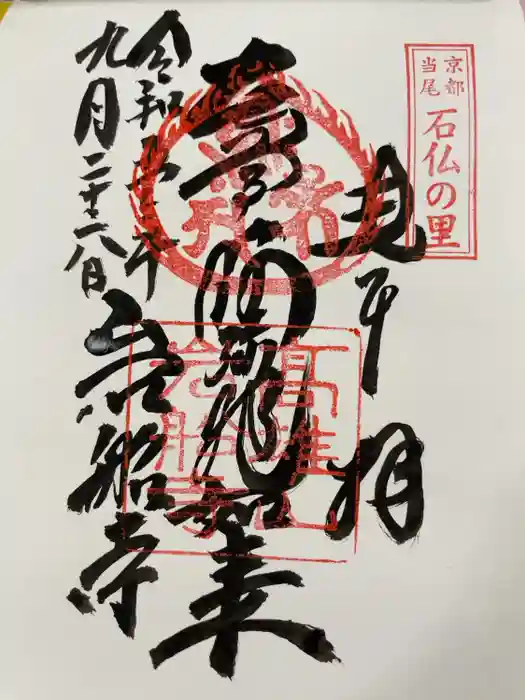 京都
当尾
石仏の里
拝
阿弥陀如来
高雄山
岩船寺
令和
九月二十八日
岩船寺